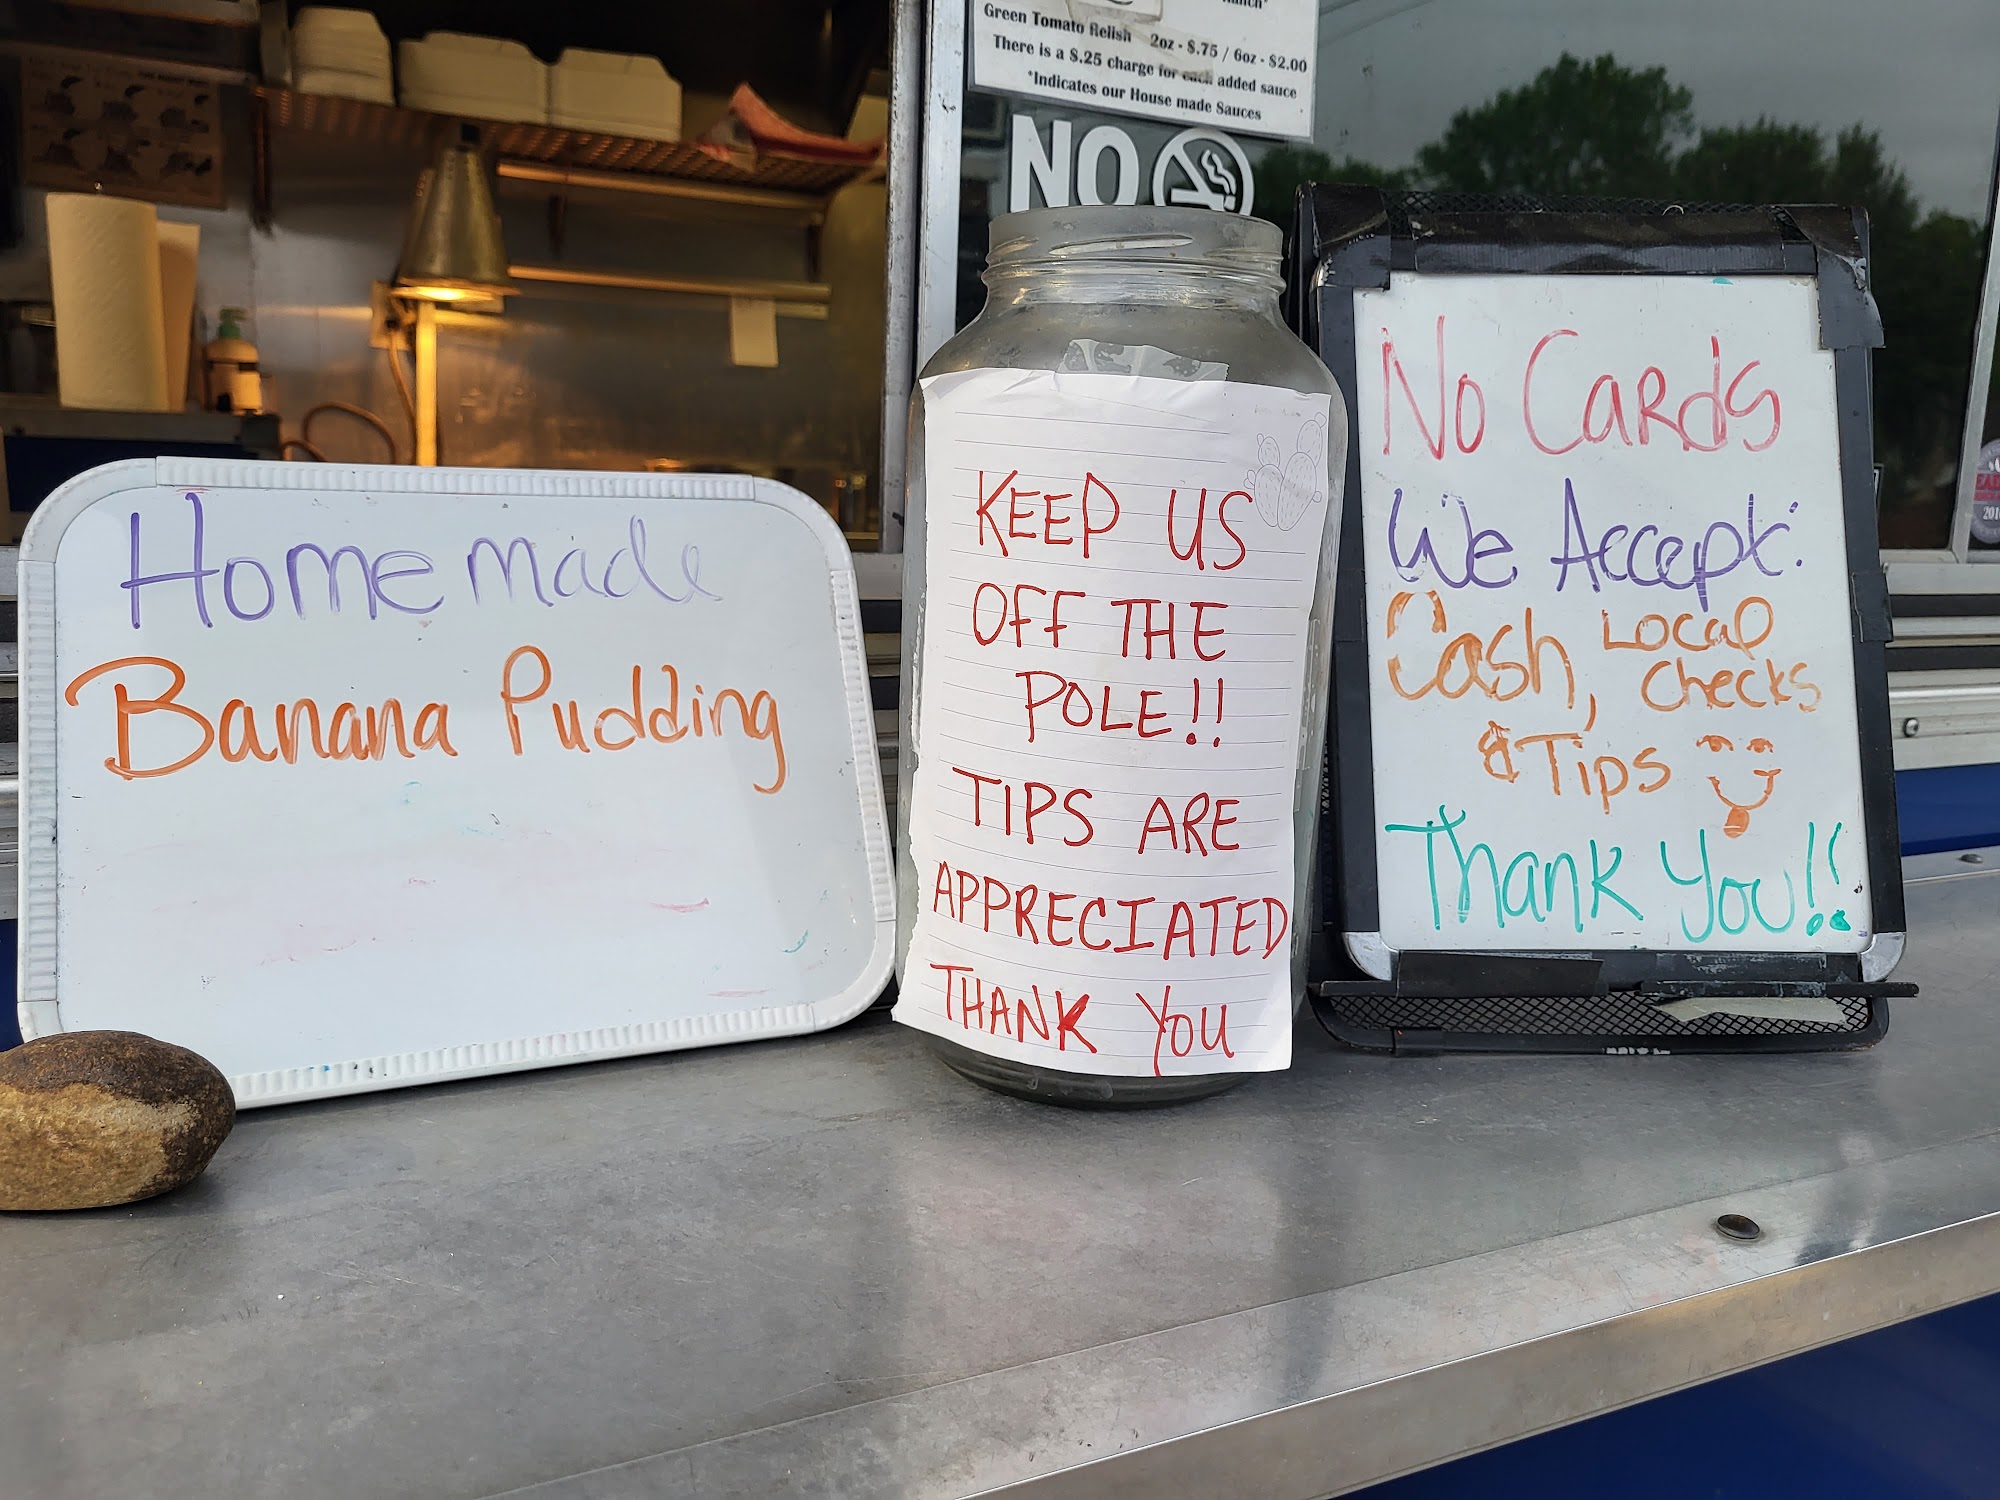 Green Tomato Relish 2oz - $.75 / 6oz - $2.00
There is a $.25 charge for each added sauce
*Indicates our House made Sauces
NO
Homemade
Banana Pudding
KEEP US
OFF THE
POLE!!
TIPS ARE
APPRECIATED
THANK YOU
No Cards
We Accept:
Cash, Local
Checks
& Tips
Thank You!!